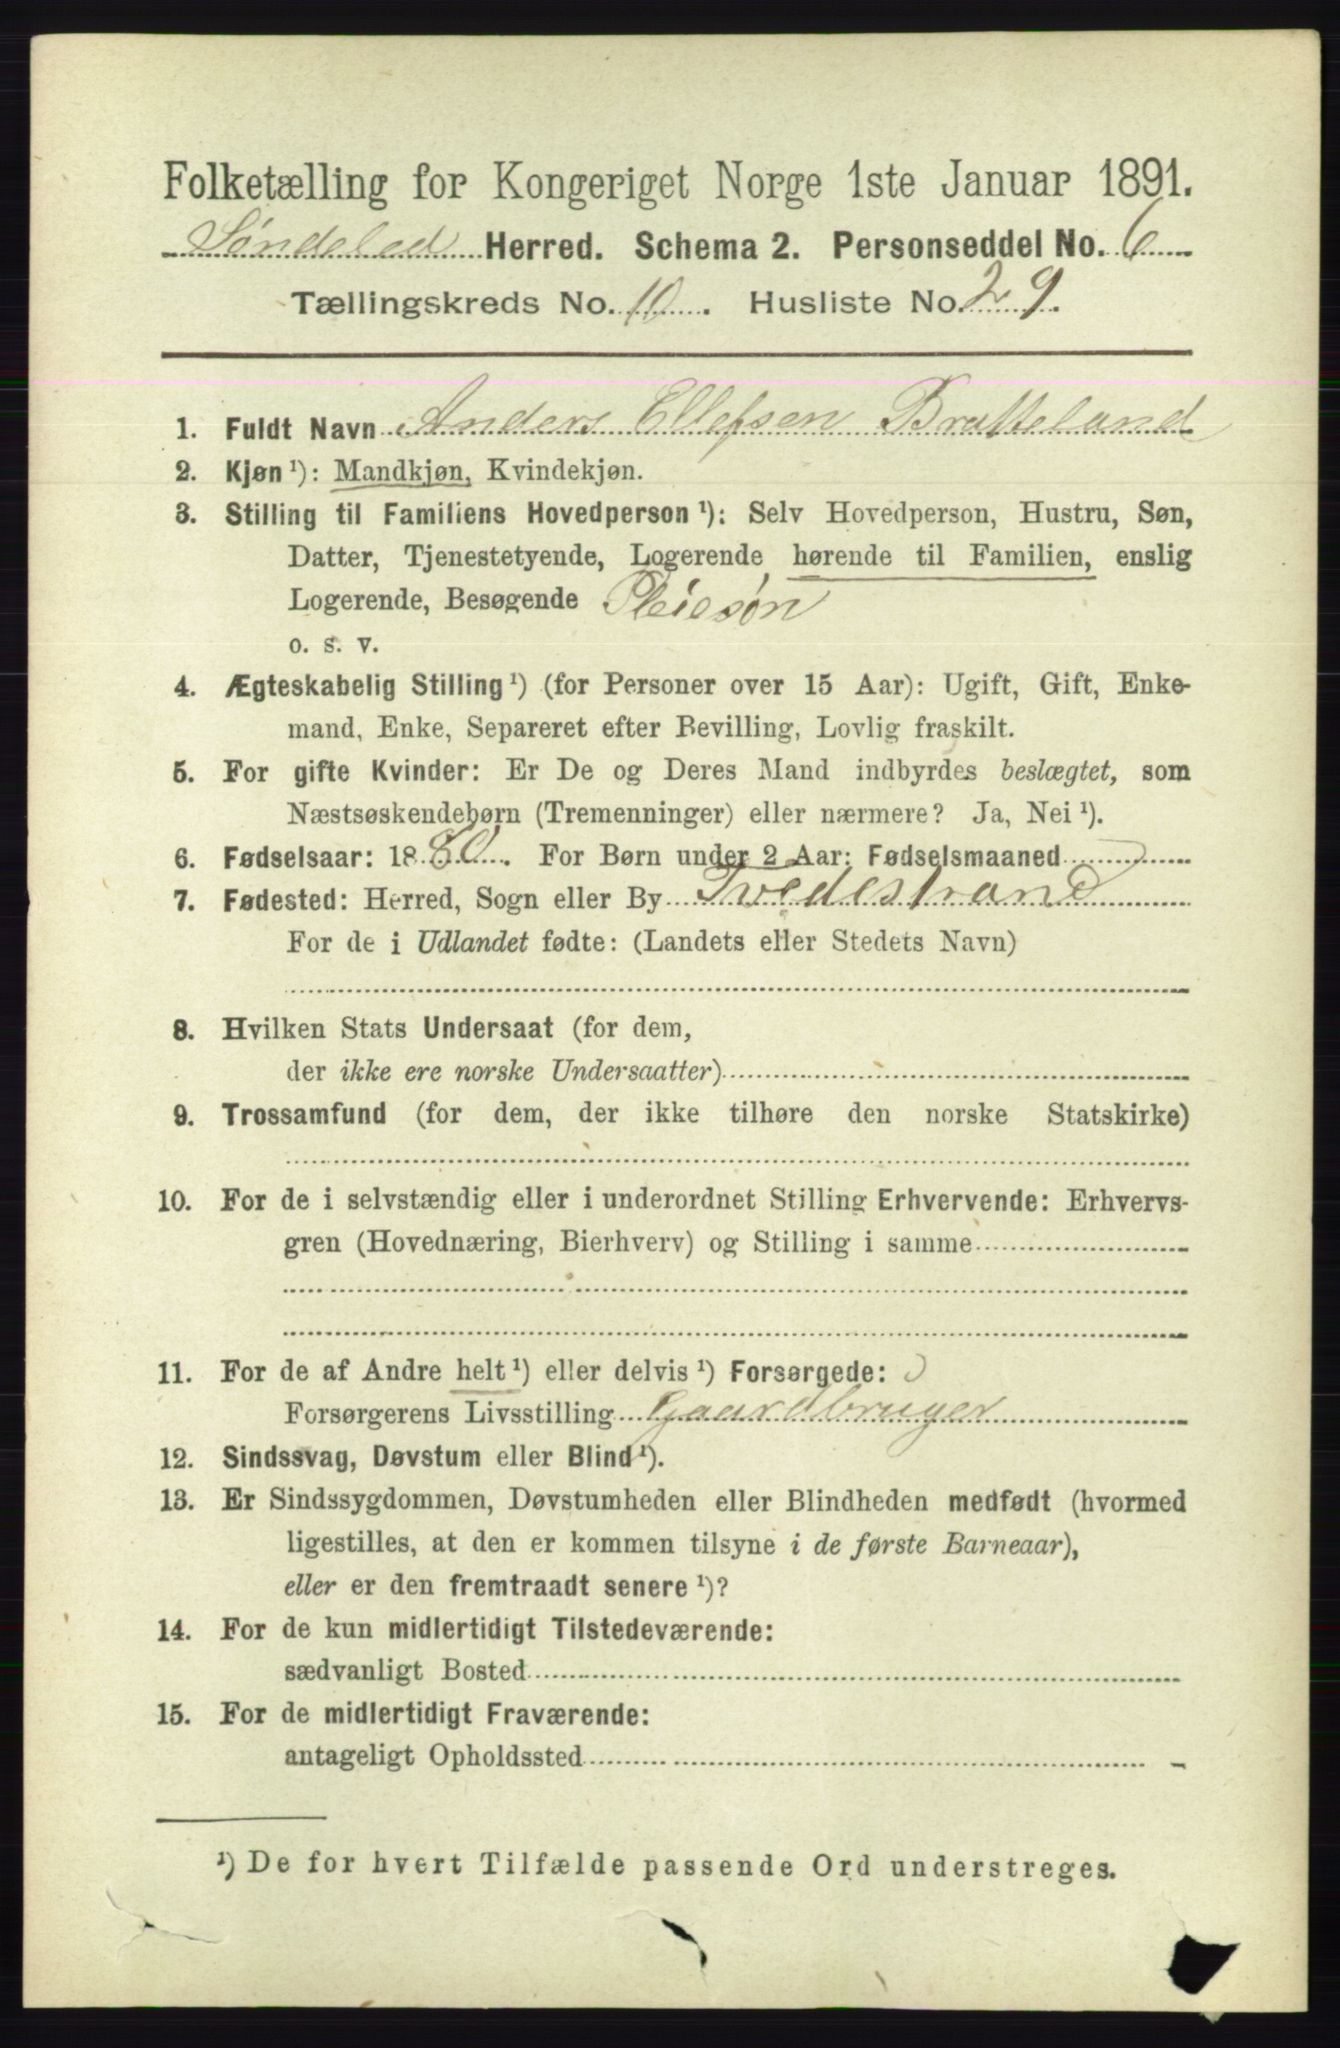 Folketælling for Kongeriget Norge 1ste Januar 1891.
Søndeled Herred. Schema 2. Personseddel No. 6
Tællingskreds No. 10. Husliste No. 29.
1. Fuldt Navn Anders Ellefsen Bratteland
2. Kjøn ¹): Mandkjøn, Kvindekjøn.
3. Stilling til Familiens Hovedperson ¹): Selv Hovedperson, Hustru, Søn,
Datter, Tjenestetyende, Logerende hørende til Familien, enslig
Logerende, Besøgende Pleiesøn
o. s. v.
4. Ægteskabelig Stilling ¹) (for Personer over 15 Aar): Ugift, Gift, Enke-
mand, Enke, Separeret efter Bevilling, Lovlig fraskilt.
5. For gifte Kvinder: Er De og Deres Mand indbyrdes beslægtet, som
Næstsøskendebørn (Tremenninger) eller nærmere? Ja, Nei ¹).
6. Fødselsaar: 1880. For Børn under 2 Aar: Fødselsmaaned
7. Fødested: Herred, Sogn eller By Tvedestrand
For de i Udlandet fødte: (Landets eller Stedets Navn)
8. Hvilken Stats Undersaat (for dem,
der ikke ere norske Undersaatter)
9. Trossamfund (for dem, der ikke tilhøre den norske Statskirke)
10. For de i selvstændig eller i underordnet Stilling Erhvervende: Erhvervs-
gren (Hovednæring, Bierhverv) og Stilling i samme
11. For de af Andre helt ¹) eller delvis ¹) Forsørgede:
Forsørgerens Livsstilling Gaardbruger
12. Sindssvag, Døvstum eller Blind ¹).
13. Er Sindssygdommen, Døvstumheden eller Blindheden medfødt (hvormed
ligestilles, at den er kommen tilsyne i de første Barneaar),
eller er den fremtraadt senere ¹)?
14. For de kun midlertidigt Tilstedeværende:
sædvanligt Bosted
15. For de midlertidigt Fraværende:
antageligt Opholdssted
¹) De for hvert Tilfælde passende Ord understreges.